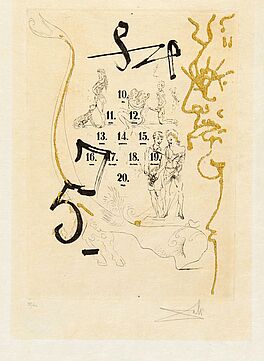 10.
11. 12.
13. 14. 15.
16. 17. 18. 19.
20.
7
5
Dalí